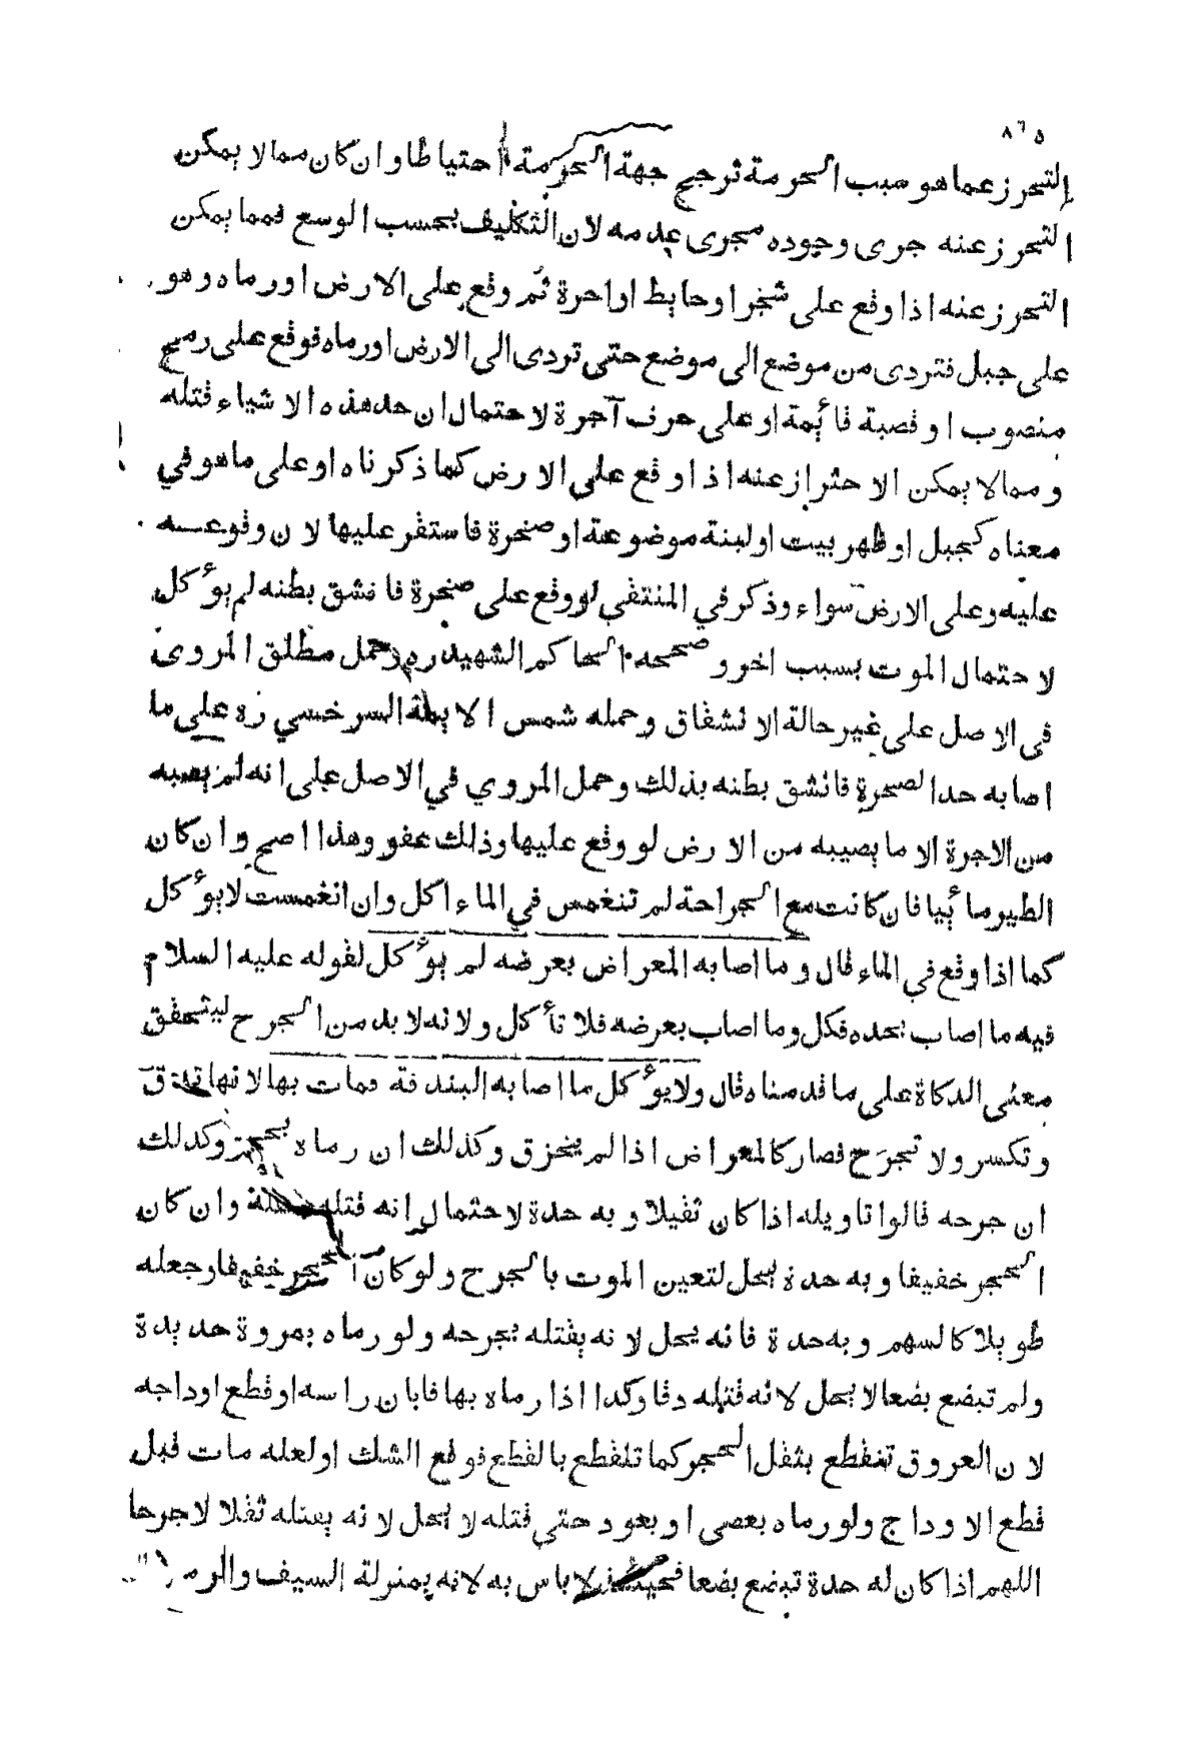 ٨٦٥
التحرز عما هو سبب الحرمة ترجح جهة الحرمة احتياطا وان كان مما لا يمكن
التحرز عنه جرى وجوده مجرى عدمه لان التكليف بحسب الوسع فمما يمكن
التحرز عنه اذا وقع على شجر او حايط او اجرة ثم وقع على الارض او رماه وهو
على جبل فتردى من موضع الى موضع حتى تردى الى الارض او رماه فوقع على رمح
منصوب او قصبة قائمة او على حرف آجرة لاحتمال ان حد هذه الاشياء قتله
ومما لا يمكن الاحتراز عنه اذا وقع على الارض كما ذكرناه او على ما هو في
معناه كجبل او ظهر بيت او لبنة موضوعة او صخرة فاستقر عليها لان وقوعه
عليه وعلى الارض سواء وذكر في المنتقى لو وقع على صخرة فانشق بطنه لم يؤكل
لاحتمال الموت بسبب اخر وصححه الحاكم الشهيد ره وحمل مطلق المروى
فى الاصل على غير حالة الانشقاق وحمله شمس الايمة السرخسي ره على ما
اصابه حد الصخرة فانشق بطنه بذلك وحمل المروي في الاصل على انه لم يصبه
من الاجرة الا ما يصيبه من الارض لو وقع عليها وذلك عفو وهذا اصح وان كان
الطير مائيا فان كانت مع الجراحة لم تنغمس في الماء اكل وان انغمست لا يؤكل
كما اذا وقع في الماء قال وما اصابه المعراض بعرضه لم يؤكل لقوله عليه السلام
فيه ما اصاب بحده فكل وما اصاب بعرضه فلا تأكل ولانه لا بد من الجرح ليتحقق
معنى الذكاة على ما قدمناه قال ولا يؤكل ما اصابه البندقة فمات بها لانها تدق
وتكسر ولا تجرح فصار كالمعراض اذا لم يخزق وكذلك ان رماه بحجر وكذلك
ان جرحه قالوا تاويله اذا كان ثقيلا وبه حدة لاحتمال انه قتله بثقله وان كان
الحجر خفيفا وبه حدة يحل لتعين الموت بالجرح ولو كان الحجر خفيفا وجعله
طويلا كالسهم وبه حدة فانه يحل لانه يقتله بجرحه ولو رماه بمروة حديدة
ولم تبضع بضعا لا يحل لانه قتله دقا وكذا اذا رماه بها فابان راسه او قطع اوداجه
لان العروق تنقطع بثقل الحجر كما تنقطع بالقطع فوقع الشك او لعله مات قبل
قطع الاوداج ولو رماه بعصى او بعود حتى قتله لا يحل لانه يقتله ثقلا لا جرحا
اللهم اذا كان له حدة تبضع بضعا فحينئذ لا باس به لانه بمنزلة السيف والرمح